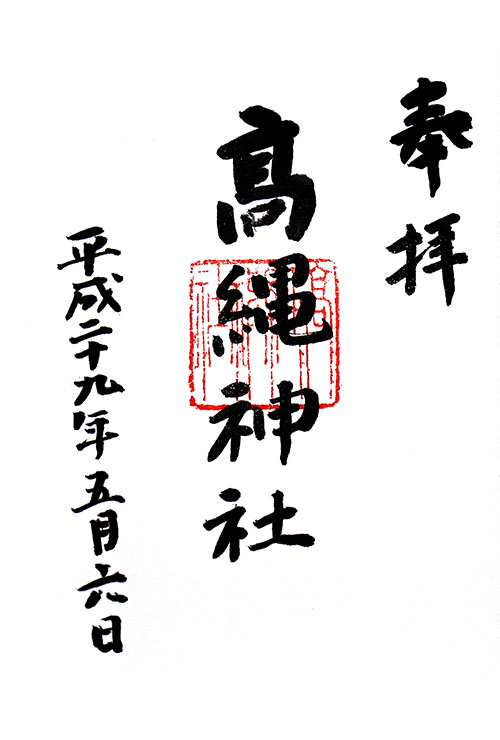 奉拝
髙縄神社
平成二十九年五月六日